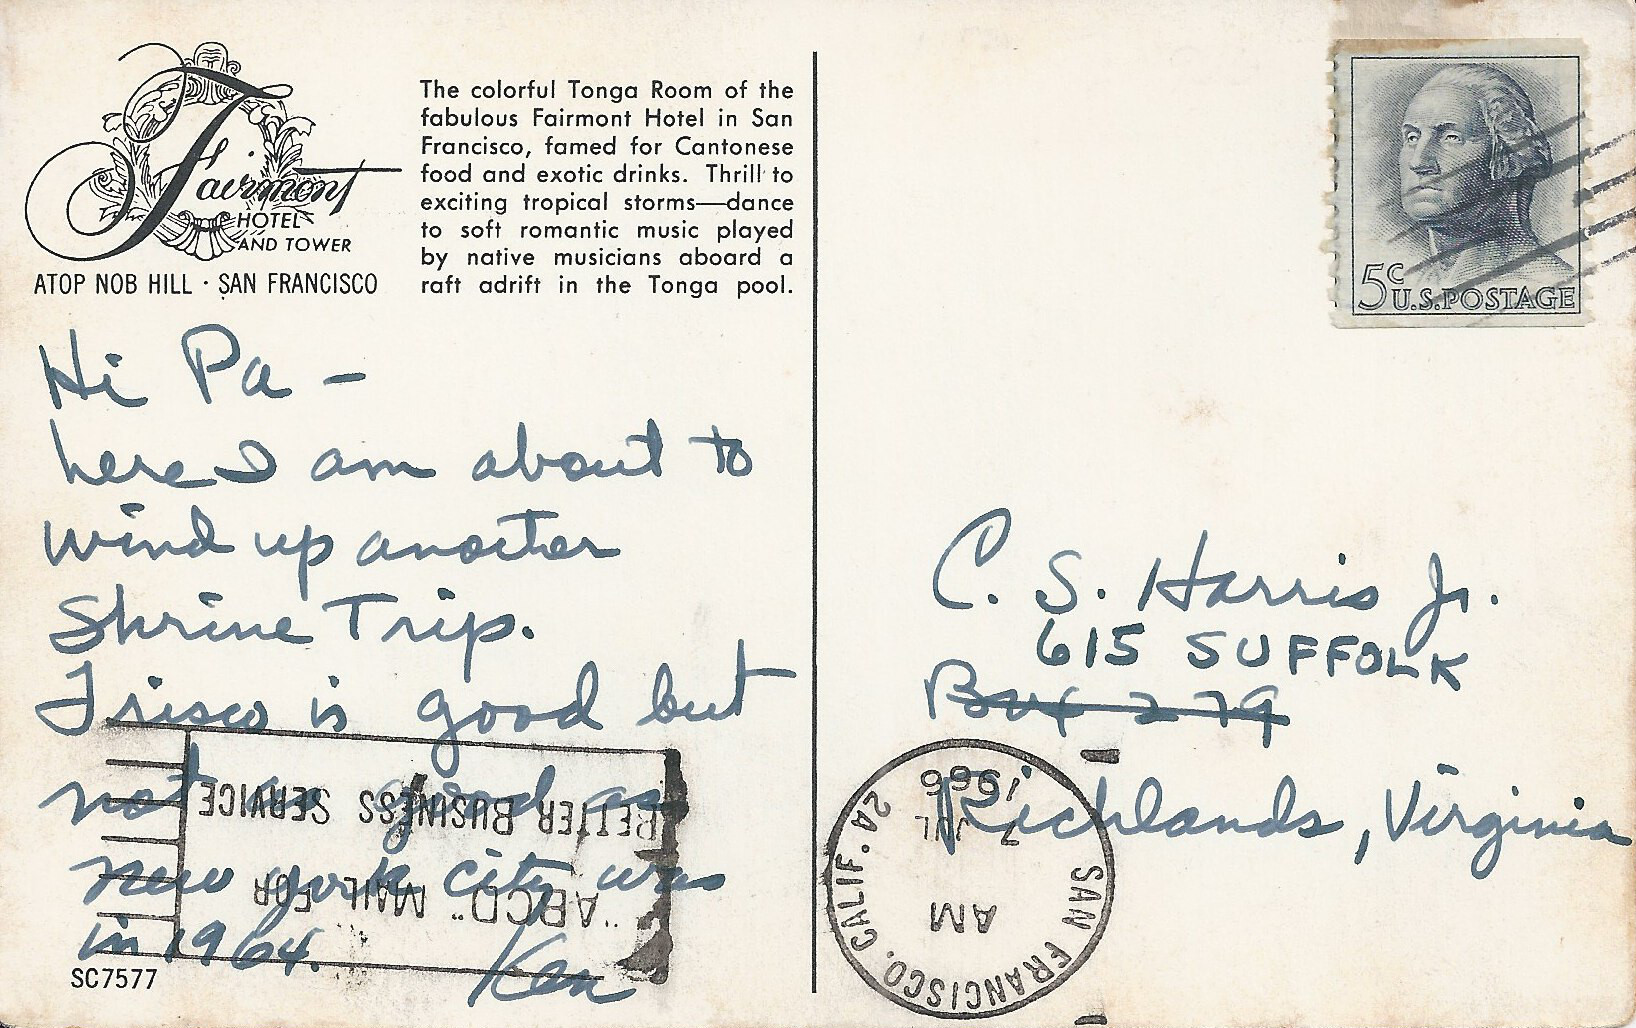 Fairmont
HOTEL
AND TOWER
ATOP NOB HILL · SAN FRANCISCO
The colorful Tonga Room of the
fabulous Fairmont Hotel in San
Francisco, famed for Cantonese
food and exotic drinks. Thrill to
exciting tropical storms—dance
to soft romantic music played
by native musicians aboard a
raft adrift in the Tonga pool.
Hi Pa -
here I am about to
wind up another
Shrine Trip.
Frisco is good but
not as good as
new york city was
in 1964.
Ken
SC7577
5c
U.S. POSTAGE
C. S. Harris Jr.
615 SUFFOLK
Box 279
Richlands, Virginia
SAN FRANCISCO, CALIF. 2A
AM
7
JUL
1966
"ABCD" MAIL FOR
BETTER BUSINESS SERVICE